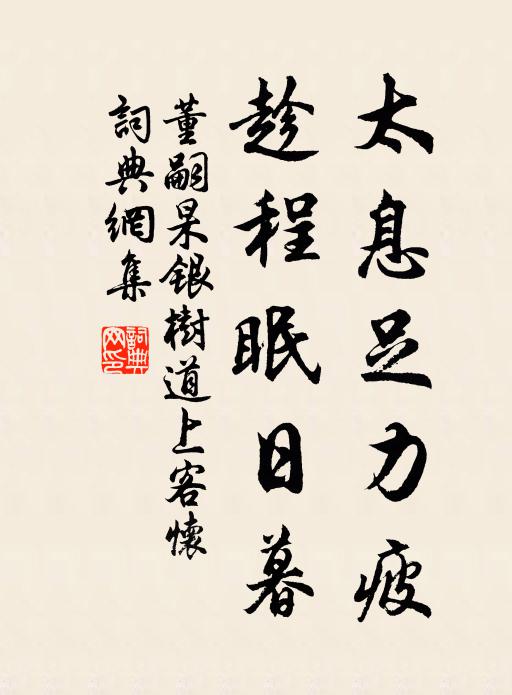 太息足力疲
趁程眠日暮
董嗣杲銀樹道上客懷
詞典網集
詞典網印